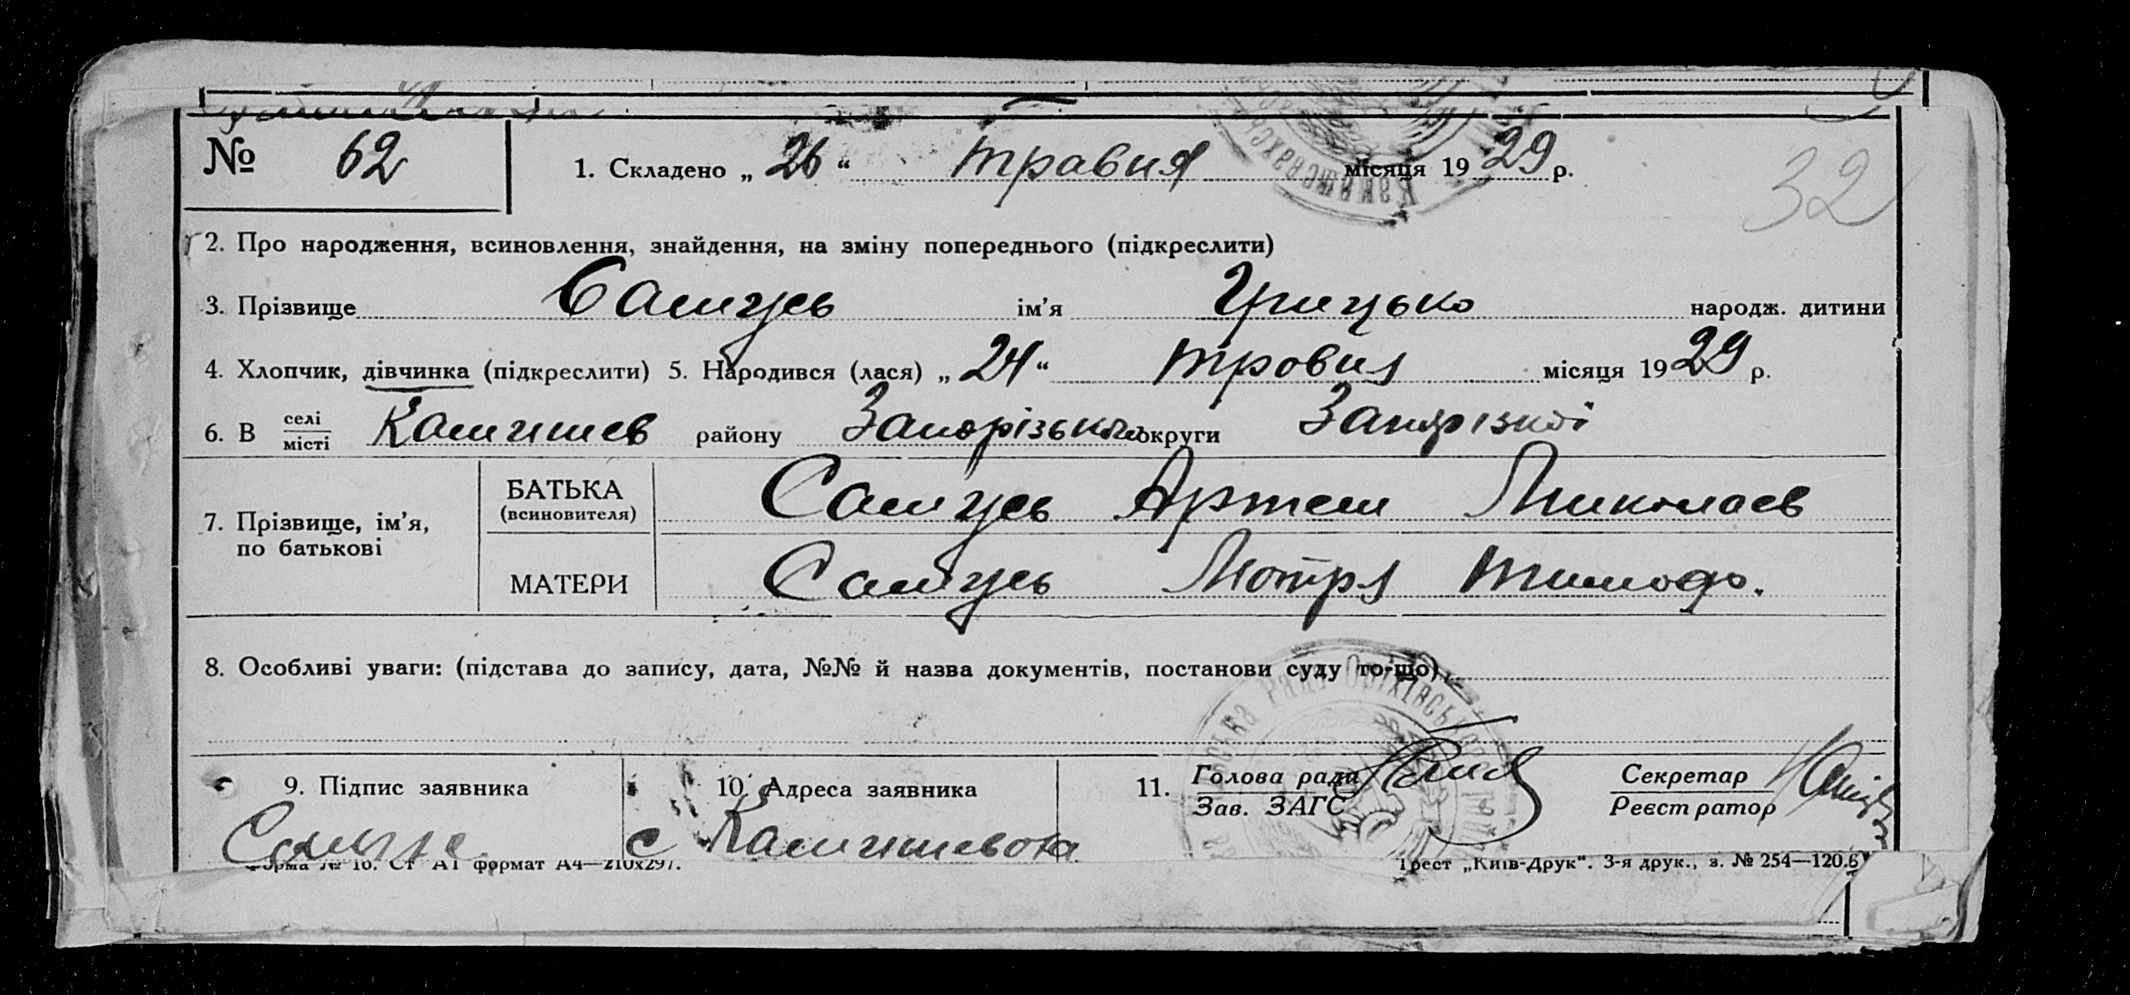 № 62 1. Складено „ 26 “ травня місяця 19 29 р.
32
2. Про народження, всиновлення, знайдення, на зміну попереднього (підкреслити)
3. Прізвище Самусь ім’я Грицько народж. дитини
4. Хлопчик, дівчинка (підкреслити) 5. Народився (лася) „ 24 “ тровня місяця 19 29 р.
6. В селі/місті Камишев району Запорізького округи Запорізкої
7. Прізвище, ім’я, по батькові
БАТЬКА (всиновителя) Самусь Артем Миколаєв
МАТЕРИ Самусь Мотря Тимофо.
8. Особливі уваги: (підстава до запису, дата, №№ й назва документів, постанови суду то-що)
9. Підпис заявника 10. Адреса заявника 11. Голова ради/Зав. ЗАГС Секретар/Реєстратор
Самусь с Камишевоха
Форма № 16. Ст А1 формат А4—210х297. Трест „Київ-Друк“. 3-я друк., з. № 254—120.6